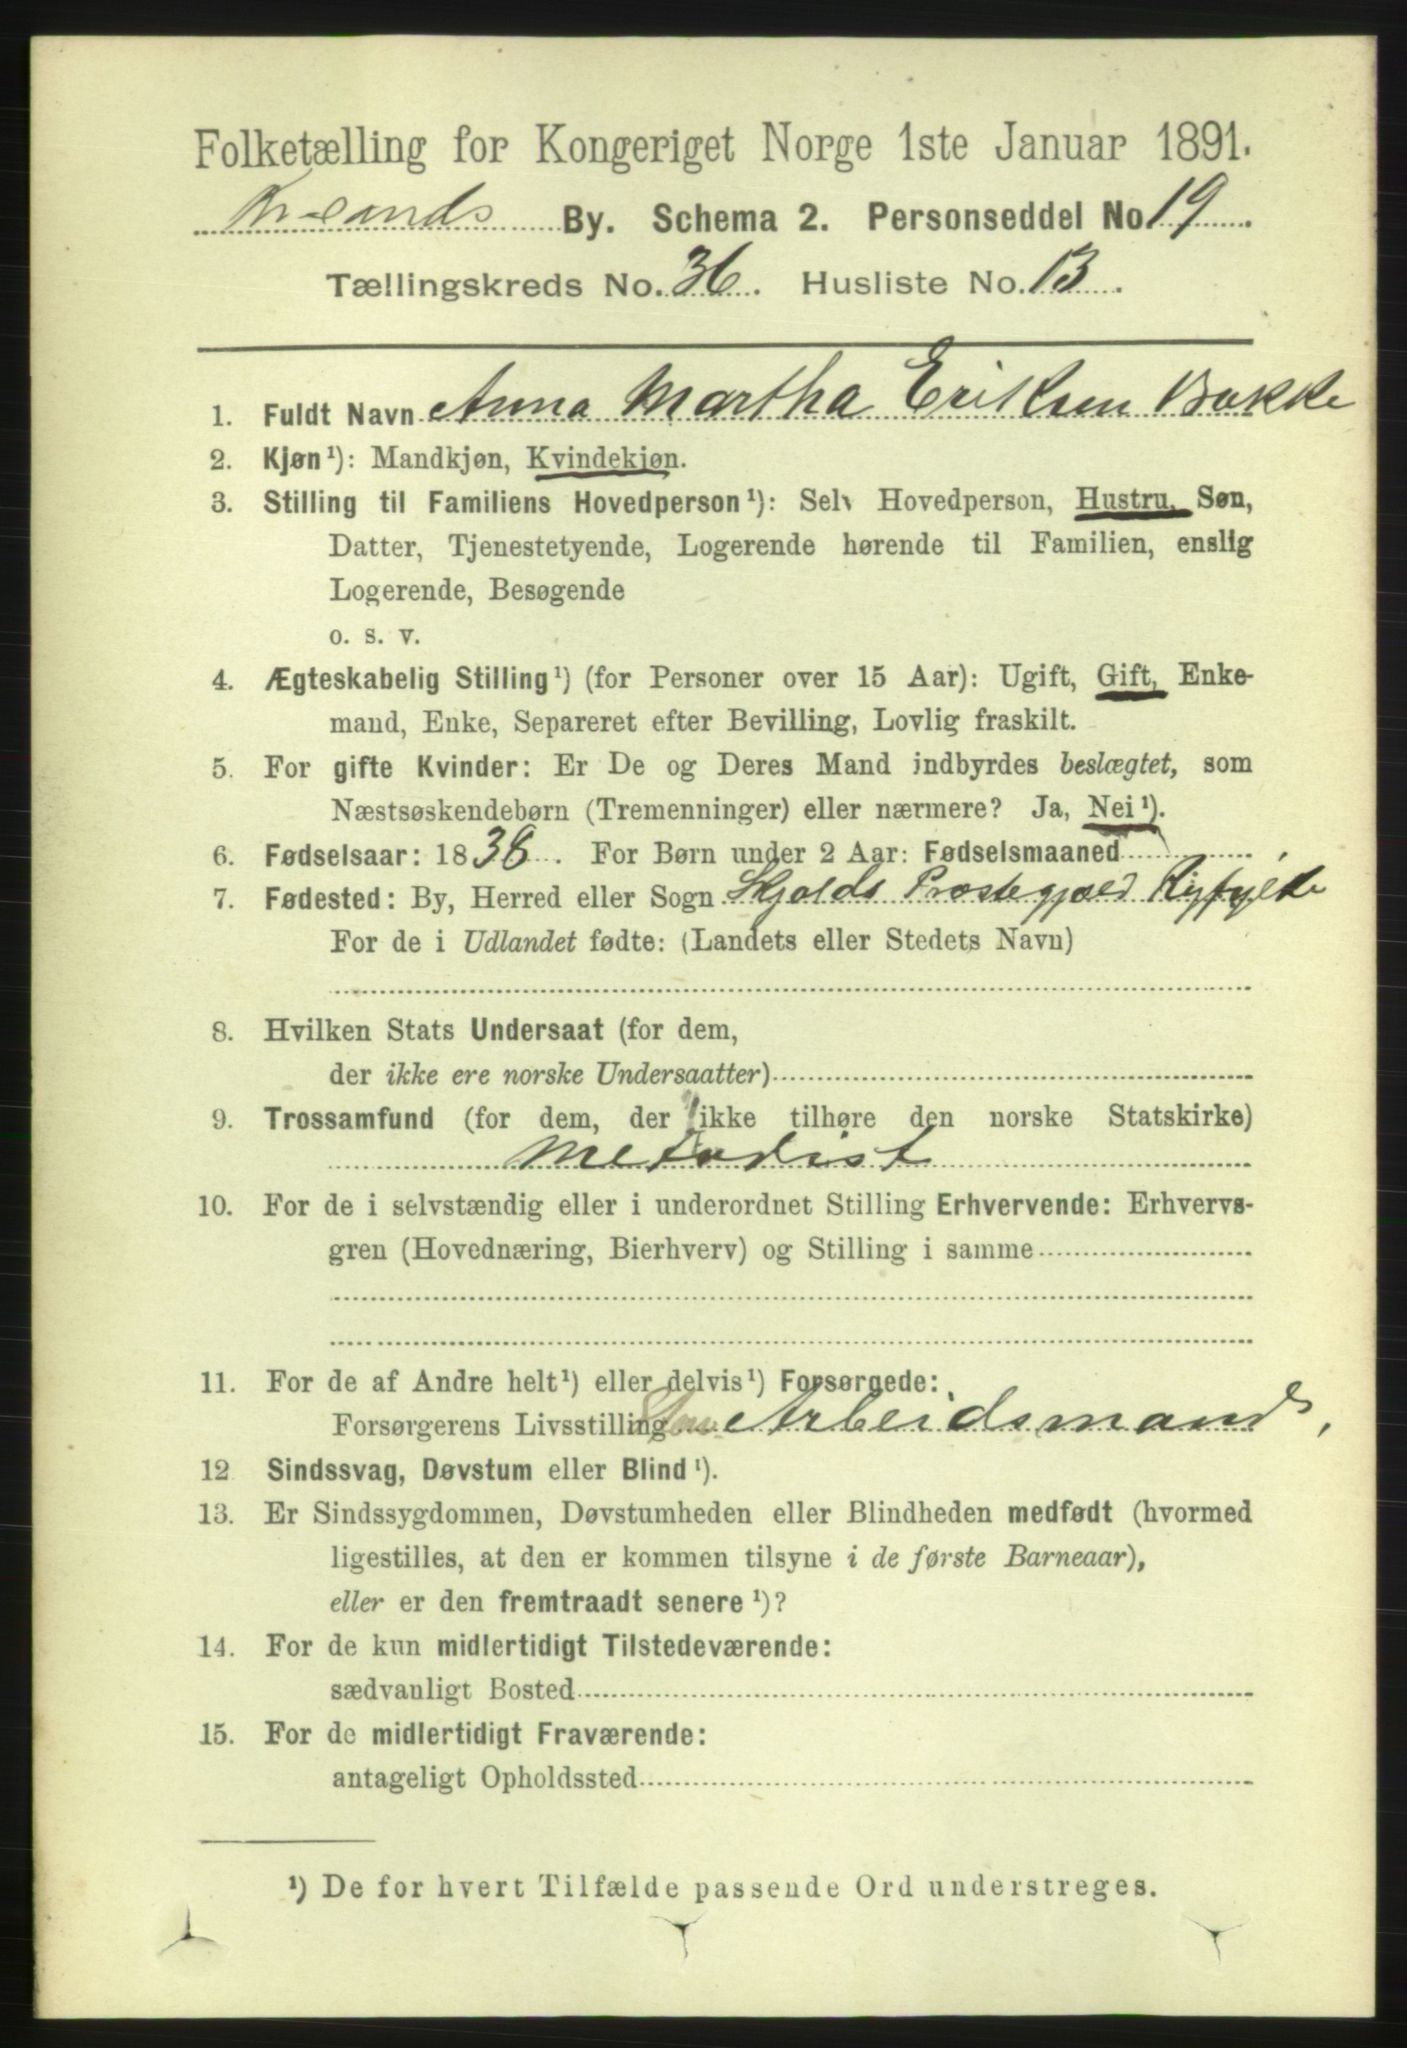 Folketælling for Kongeriget Norge 1ste Januar 1891.
Kr-sands By. Schema 2. Personseddel No 19.
Tællingskreds No. 36. Husliste No. 13.
1. Fuldt Navn Anna Martha Eriksen Bakke
2. Kjøn¹): Mandkjøn, Kvindekjøn.
3. Stilling til Familiens Hovedperson¹): Selv Hovedperson, Hustru, Søn,
Datter, Tjenestetyende, Logerende hørende til Familien, enslig
Logerende, Besøgende
o. s. v.
4. Ægteskabelig Stilling¹) (for Personer over 15 Aar): Ugift, Gift, Enke-
mand, Enke, Separeret efter Bevilling, Lovlig fraskilt.
5. For gifte Kvinder: Er De og Deres Mand indbyrdes beslægtet, som
Næstsøskendebørn (Tremenninger) eller nærmere? Ja, Nei¹).
6. Fødselsaar: 1838. For Børn under 2 Aar: Fødselsmaaned
7. Fødested: By, Herred eller Sogn Skjolds Præstegjæld Ryfylke
For de i Udlandet fødte: (Landets eller Stedets Navn)
8. Hvilken Stats Undersaat (for dem,
der ikke ere norske Undersaatter)
9. Trossamfund (for dem, der ikke tilhøre den norske Statskirke)
Metodist
10. For de i selvstændig eller i underordnet Stilling Erhvervende: Erhvervs-
gren (Hovednæring, Bierhverv) og Stilling i samme
11. For de af Andre helt¹) eller delvis¹) Forsørgede:
Forsørgerens Livsstilling Arbeidsmand,
12 Sindssvag, Døvstum eller Blind¹).
13. Er Sindssygdommen, Døvstumheden eller Blindheden medfødt (hvormed
ligestilles, at den er kommen tilsyne i de første Barneaar),
eller er den fremtraadt senere¹)?
14. For de kun midlertidigt Tilstedeværende:
sædvanligt Bosted
15. For de midlertidigt Fraværende:
antageligt Opholdssted
¹) De for hvert Tilfælde passende Ord understreges.